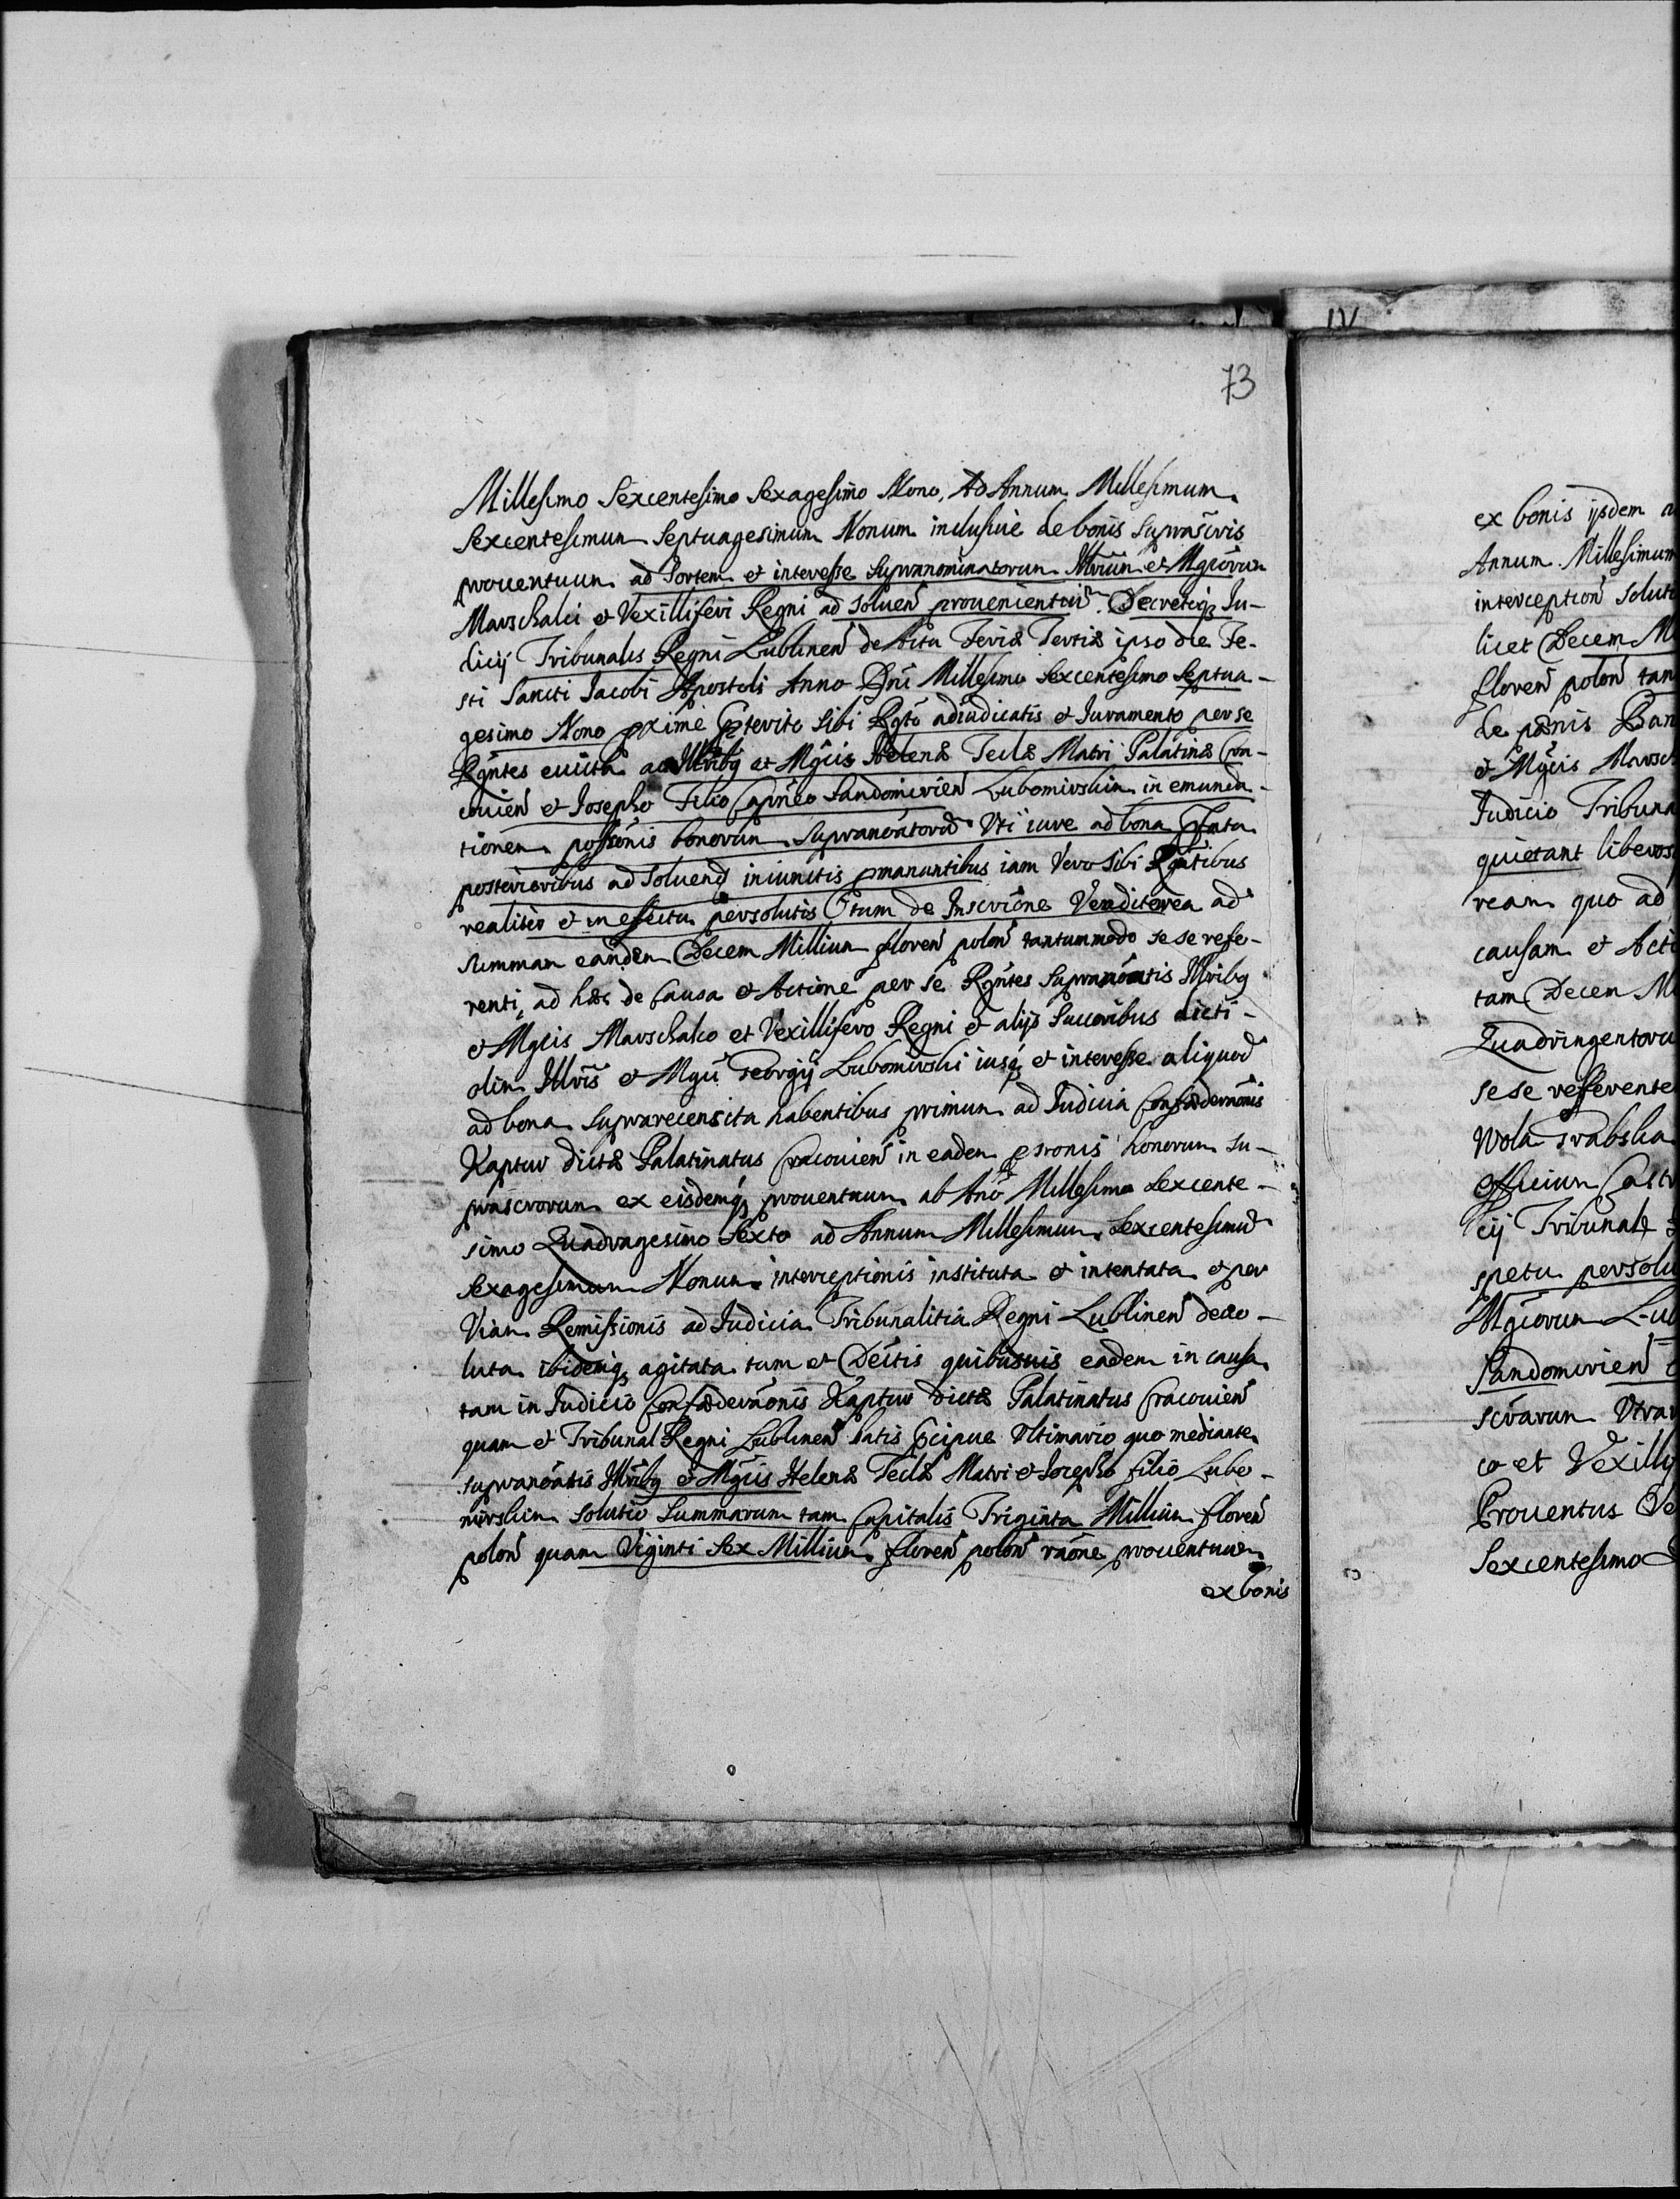 IV
73
Millesimo Sexcentesimo Sexagesimo Nono, Ad Annum Millesimum
Sexcentesimum Septuagesimum Nonum inclusiue de bonis suprascris
prouentuum ad Sortem et interesse supranominatorum Illriũm et Mgcorum
Marschalci et Vexilliferi Regni ad soluen prouenientiũ Decretiqꝫ Ju-
dicij Tribunalis Regni Lublinen de Actu Feria Tertia ipso die Fe-
sti Sancti Jacobi Apostoli Anno Dni Millesimo Sexcentesimo Septua-
gesimo Nono pxime pterito sibi adiudicatis et Juramento per se
Rgntes euictis ac Illribꝫ et Mgcis Helenæ Teclæ Matri Palatinæ Cra-
couien et Josepho Filio Capneo Sandomirien Lubomirskim in emunda-
tionem possonis bonorum supranoatorũ Vti iure ad bona pfata
posterioribus ad soluend iniunctis pmanantibus iam vero sibi Rgntibus
realiter et in effectu persolutis tum de Inscrione ad
summam eandem Decem Millium floren polon tantummodo se se refe-
renti, ad hæc de Causa et Actione per se Rgntes supranoatis Illribꝫ
et Mgcis Marschalco et Vexillifero Regni et alijs Succoribus dicti
olim Illris et Mgci Georgij Lubomirski iusqꝫ et interesse aliquod
ad bona suprarecensita habentibus primum ad Judicia Confœdernonis
Kaptur dictæ Palatinatus Cracouien in eadem bonorum su-
prascrorum ex eisdemqꝫ prouentuum ab Ano Millesimo Sexcente-
simo Quadragesimo Sexto ad Annum Millesimum Sexcentesimũ
Sexagesimum Nonum interceptionis instituta et intentata et per
Viam Remissionis ad Judicia Tribunalitia Regni Lublinen deuo-
luta ibidemqꝫ agitata tum et Decitis quibusuis eadem in causa
tam in Judicio Confœdernonis Kaptur dictæ Palatinatus Cracouien
quam et Tribunal Regni Lublinen latis pcipue Vltimario quo mediante
supranoatis Illribꝫ et Mgcis Helenæ Teclæ Matri et Josepho filio Lubo-
mirskim solutio Summarum tam Capitalis Triginta Millium floren
polon quam Viginti Sex Millium floren polon raone prouentuum
ex bonis
ex bonis ijsdem
Annum Millesimum
interception
licet Decem
floren polon
de
et Mgcis
Judicio
quietant
ream quo ad
causam et
tam Decem
Quadringentoru
se se refferente
Wola Grabska
officium
cij Tribunal
spetu
Mgcorum
Sandomirien
scrarum
co et
Prouentus
Sexcentesimo